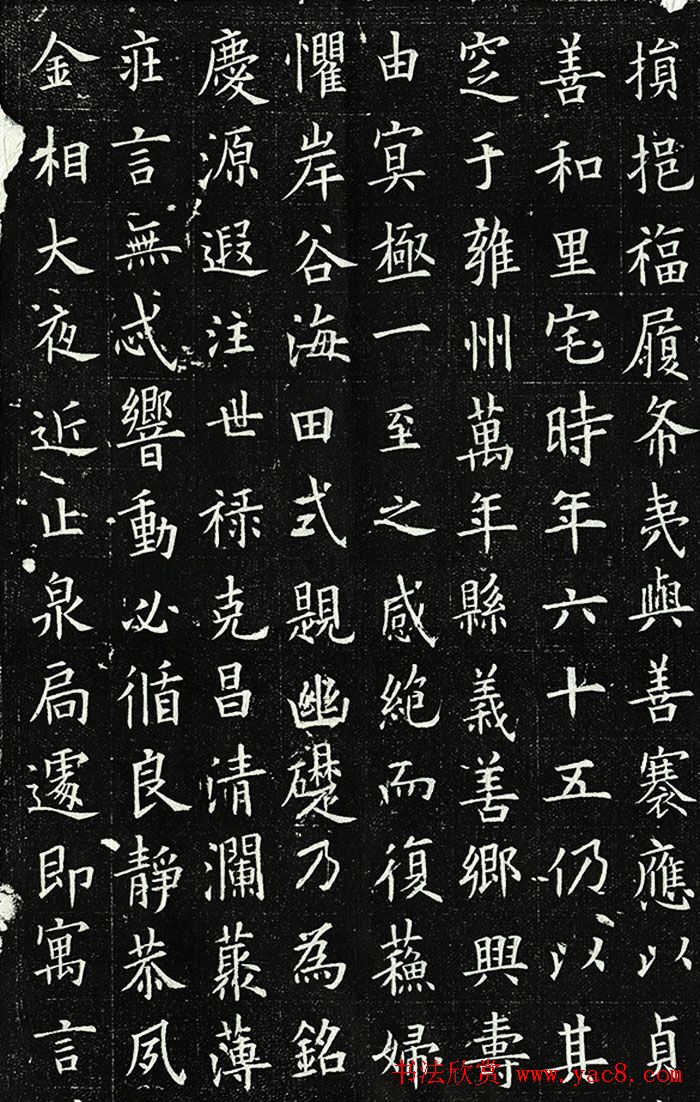 損挹福履希夷與善褰應以貞
善和里宅時年六十五仍以其
窆于雍州萬年縣義善鄉興壽
由冥極一至之感絕而復蘓婦
懼岸谷海田式題幽礎乃為銘
慶源遐注世祿克昌清瀾藂薄
莊言無忒響動必循良靜恭夙
金相大夜近止泉扃遽即寓言
书法欣赏 www.yac8.com